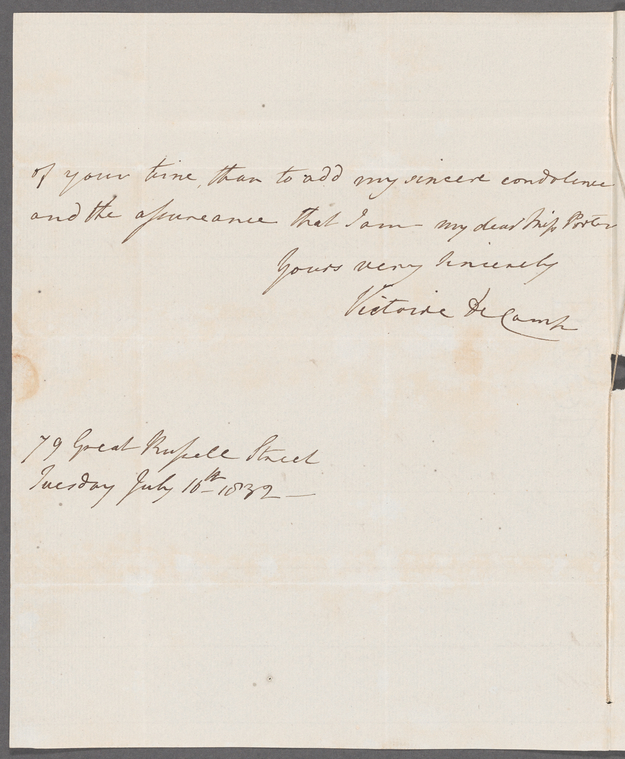 of your time, than to add my sincere condolence
and the assureance that I am my dear Miss Porter
Yours very sincerely
Victoire De Camp
79 Great Russell Street
Tuesday July 10th 1832